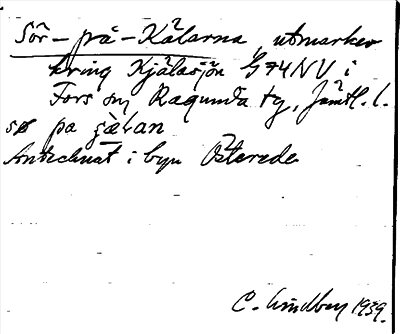 Sör-på-Kälarna, utmarker
kring Kjälasjön G74NV i
Fors sn, Ragunda tg, Jämtl. l.
sø pa çælan
Antecknat i byn Österede
C. Lindberg 1939.